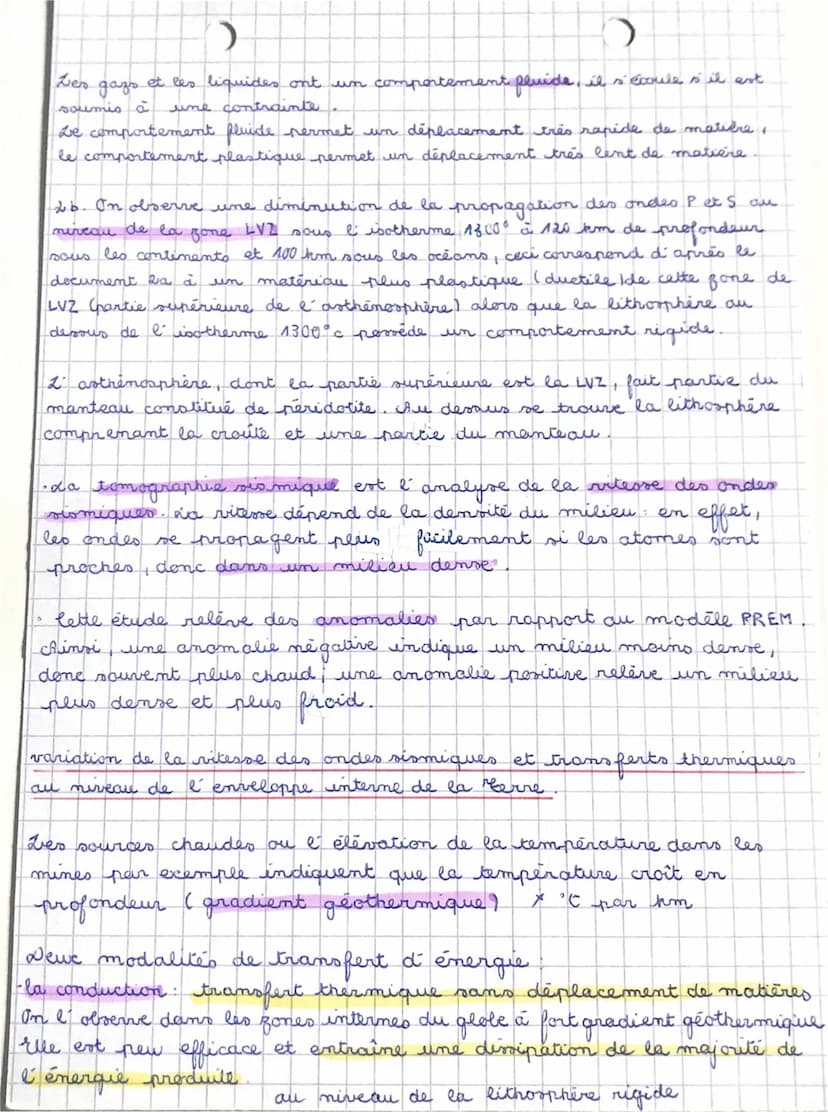 Les gazs et les liquides ont un comportement fluide, il s'écoule s'il est
soumis à une contrainte.
Le comportement fluide permet un déplacement très rapide de matière,
le comportement plastique permet un déplacement très lent de matière.
2b. On observe une diminution de la propagation des ondes P et S au
niveau de la zone LVZ sous l'isotherme 1300° à 120 km de profondeur
sous les continents et 100 km sous les océans, ceci correspond d'après le
document 2a à un matériau plus plastique (ductile) de cette zone de
LVZ (partie supérieure de l'asthénosphère) alors que la lithosphère au
dessus de l'isotherme 1300°c possède un comportement rigide.
L'asthénosphère, dont la partie supérieure est la LVZ, fait partie du
manteau constitué de péridotite. Au dessus se trouve la lithosphère
comprenant la croûte et une partie du manteau.
·La tomographie sismique est l'analyse de la vitesse des ondes
sismiques. La vitesse dépend de la densité du milieu : en effet,
les ondes se propagent plus facilement si les atomes sont
proches, donc dans un milieu dense.
· Cette étude relève des anomalies par rapport au modèle PREM.
Ainsi, une anomalie négative indique un milieu moins dense,
donc souvent plus chaud ; une anomalie positive relève un milieu
plus dense et plus froid.
variation de la vitesse des ondes sismiques et transferts thermiques
au niveau de l'enveloppe interne de la Terre.
Les sources chaudes ou l'élévation de la température dans les
mines par exemple indiquent que la température croît en
profondeur (gradient géothermique) °C par km
Deux modalités de transfert d'énergie :
-la conduction : transfert thermique sans déplacement de matières
On l'observe dans les zones internes du globe à fort gradient géothermique
Elle est peu efficace et entraîne une dissipation de la majorité de
l'énergie produite.
au niveau de la lithosphère rigide